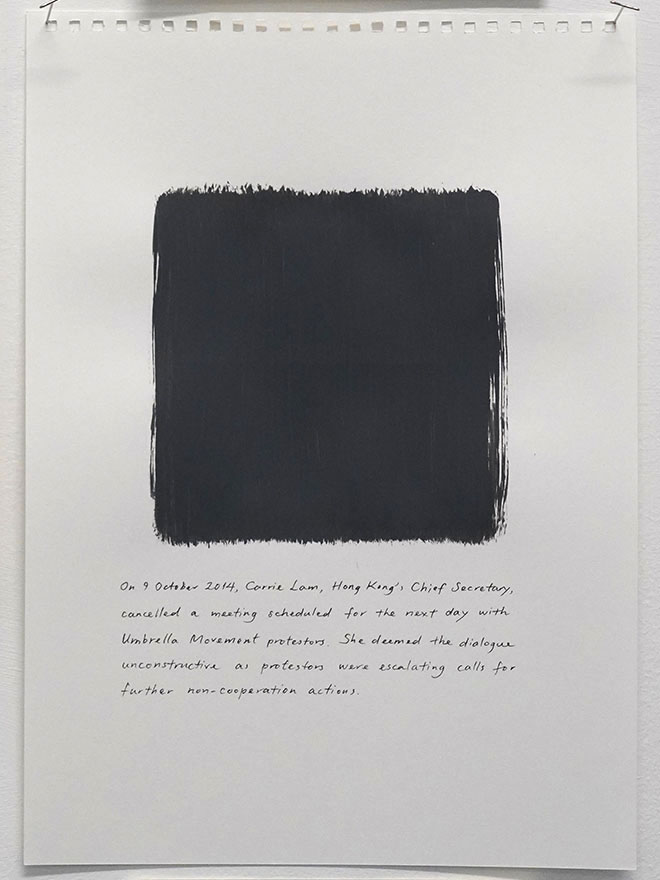 On 9 October 2014, Carrie Lam, Hong Kong's Chief Secretary,
cancelled a meeting scheduled for the next day with
Umbrella Movement protestors. She deemed the dialogue
unconstructive as protestors were escalating calls for
further non-cooperation actions.